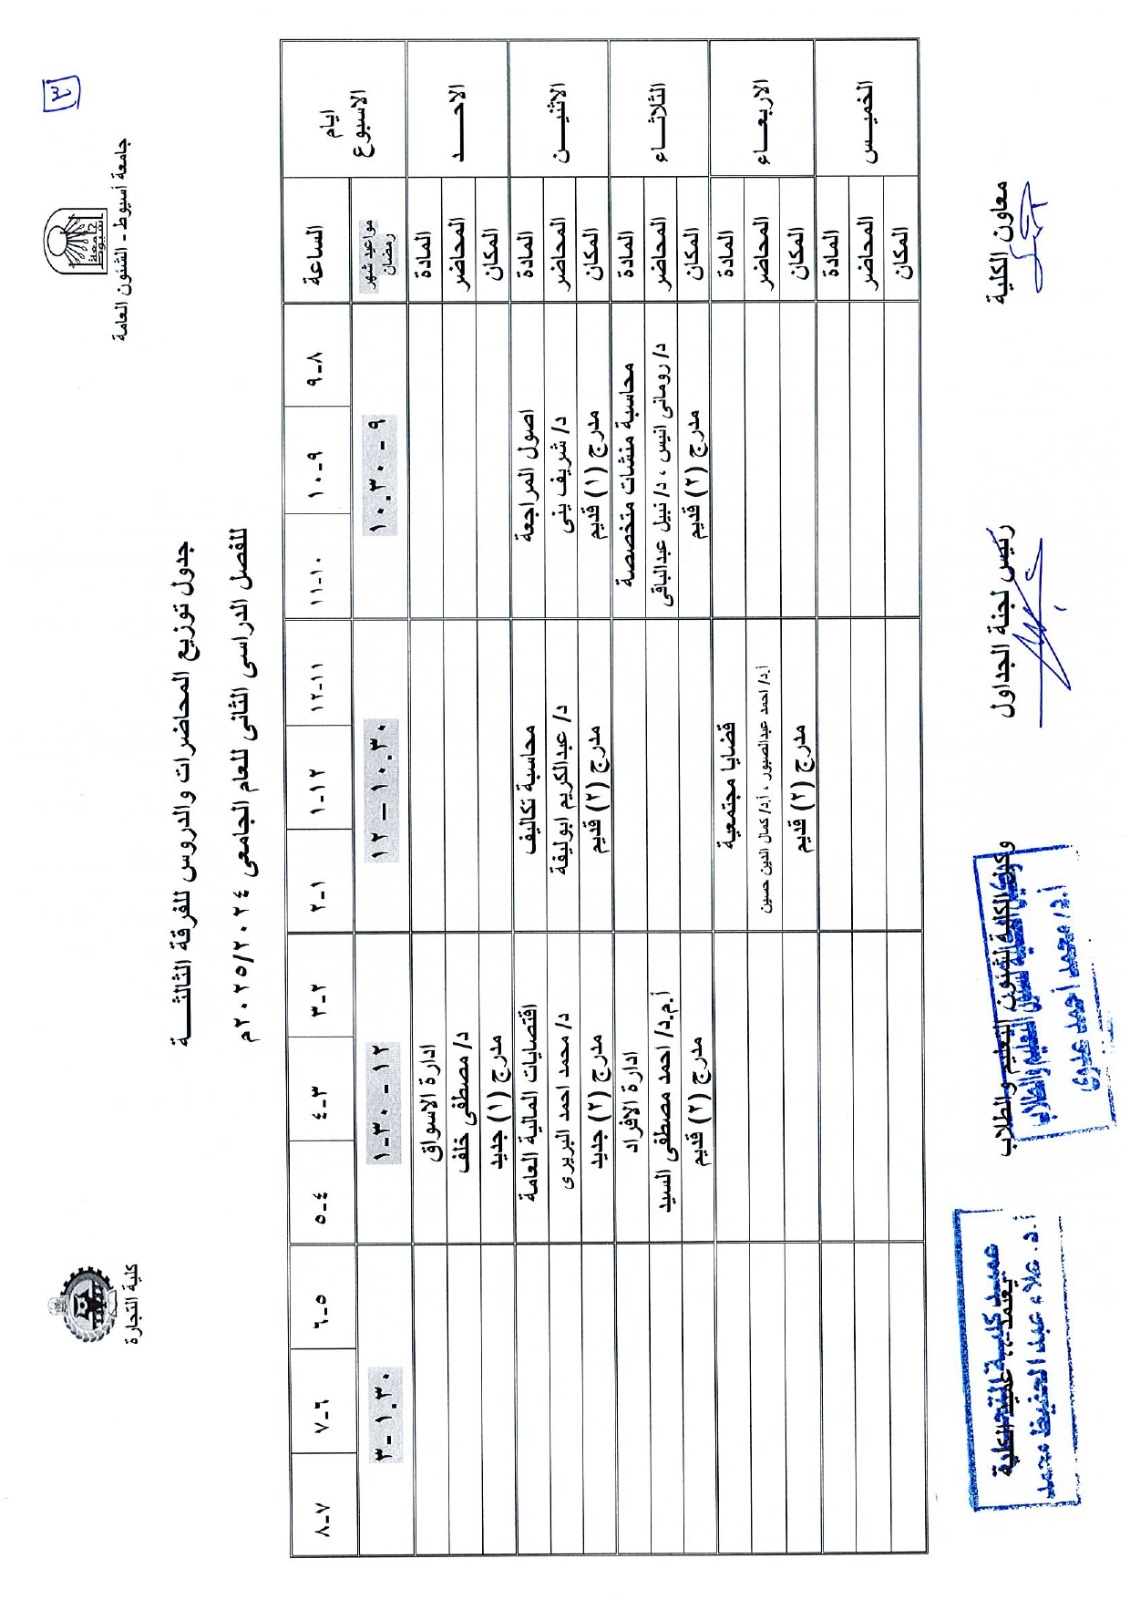 ٣
جامعة أسيوط - الشئون العامة
كلية التجارة
جدول توزيع المحاضرات والدروس للفرقة الثالثـــة
للفصل الدراسى الثانى للعام الجامعى ٢٠٢٥/٢٠٢٤م
ايام الاسبوع
الساعة ٨-٩ ٩-١٠ ١٠-١١ ١١-١٢ ١٢-١ ١-٢ ٢-٣ ٣-٤ ٤-٥ ٥-٦ ٦-٧ ٧-٨
مواعيد شهر رمضان ٩ - ١٠.٣٠ ١٠.٣٠ – ١٢ ١٢ - ١-٣٠ ١.٣٠ - ٣
الاحـــد
المادة ادارة الاسواق
المحاضر د/ مصطفى خلف
المكان مدرج (١) جديد
الاثنيـــن
المادة اصول المراجعة محاسبة تكاليف اقتصايات المالية العامة
المحاضر د/ شريف ينى د/ عبدالكريم ابوليفة د/ محمد احمد البريرى
المكان مدرج (١) قديم مدرج (٢) قديم مدرج (٢) جديد
الثلاثـــاء
المادة محاسبة منشات متخصصة ادارة الافراد
المحاضر د/ رومانى انيس ، د/ نبيل عبدالباقى أ.م.د/ احمد مصطفى السيد
المكان مدرج (٢) قديم مدرج (٢) قديم
الاربعـــاء
المادة قضايا مجتمعية
المحاضر أ.د/ احمد عبدالصبور ، أ.د/ كمال الدين حسين
المكان مدرج (٢) قديم
الخميـــس
المادة
المحاضر
المكان
معاون الكلية
رئيس لجنة الجداول
وكيل الكلية لشئون التعليم والطلاب
وكيل الكلية لشئون التعليم والطلاب
أ.د/ محمد أحمد عدوى
يعتمد،، عميد الكلية
عميد كلية التجارة
أ.د. علاء عبد الحفيظ محمد